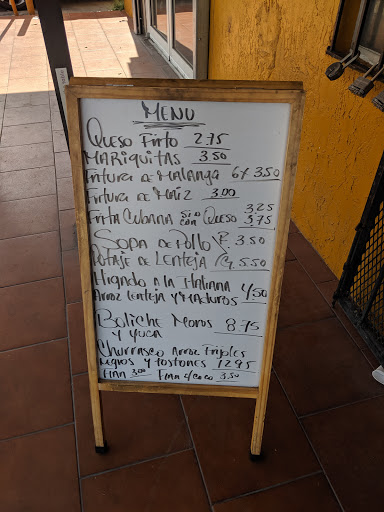 MENU
QUESO FRITO 2.75
MARIQUITAS 3.50
FRITURA DE MALANGA 6X 3.50
FRITURA DE MAIZ 3.00
FRITA CUBANA SOLO 3.25
CON QUESO 3.75
SOPA DE POLLO P. 3.50
POTAJE DE LENTEJA /G 5.50
HIGADO A LA ITALIANA
ARROZ LENTEJA Y MADUROS 4.50
BOLICHE MOROS 8.75
Y YUCA
CHURRASCO ARROZ FRIJOLES
NEGROS Y TOSTONES 12.95
FLAN 3.00 FLAN C/COCO 3.50